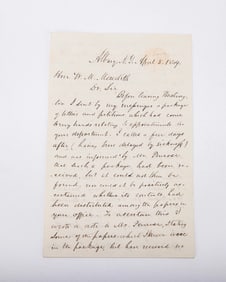 Albany, N.Y. April 5. 1849.
Hon. W. M. Meredith
Dr. Sir
Before leaving Washing-
ton I sent by my messenger a package
of letters and petitions which had come
to my hands relating to appointments in
your department. I called a few days
after (having been delayed by sickness)
and was informed by Mr.
that such a package had been re-
ceived, but it could not then be
found, nor could it be positively as-
certained whether its contents had
been distributed among the papers in
your office. To ascertain this I
wrote a note to Mr. stating
some of the papers which I knew were
in the package, but have received no